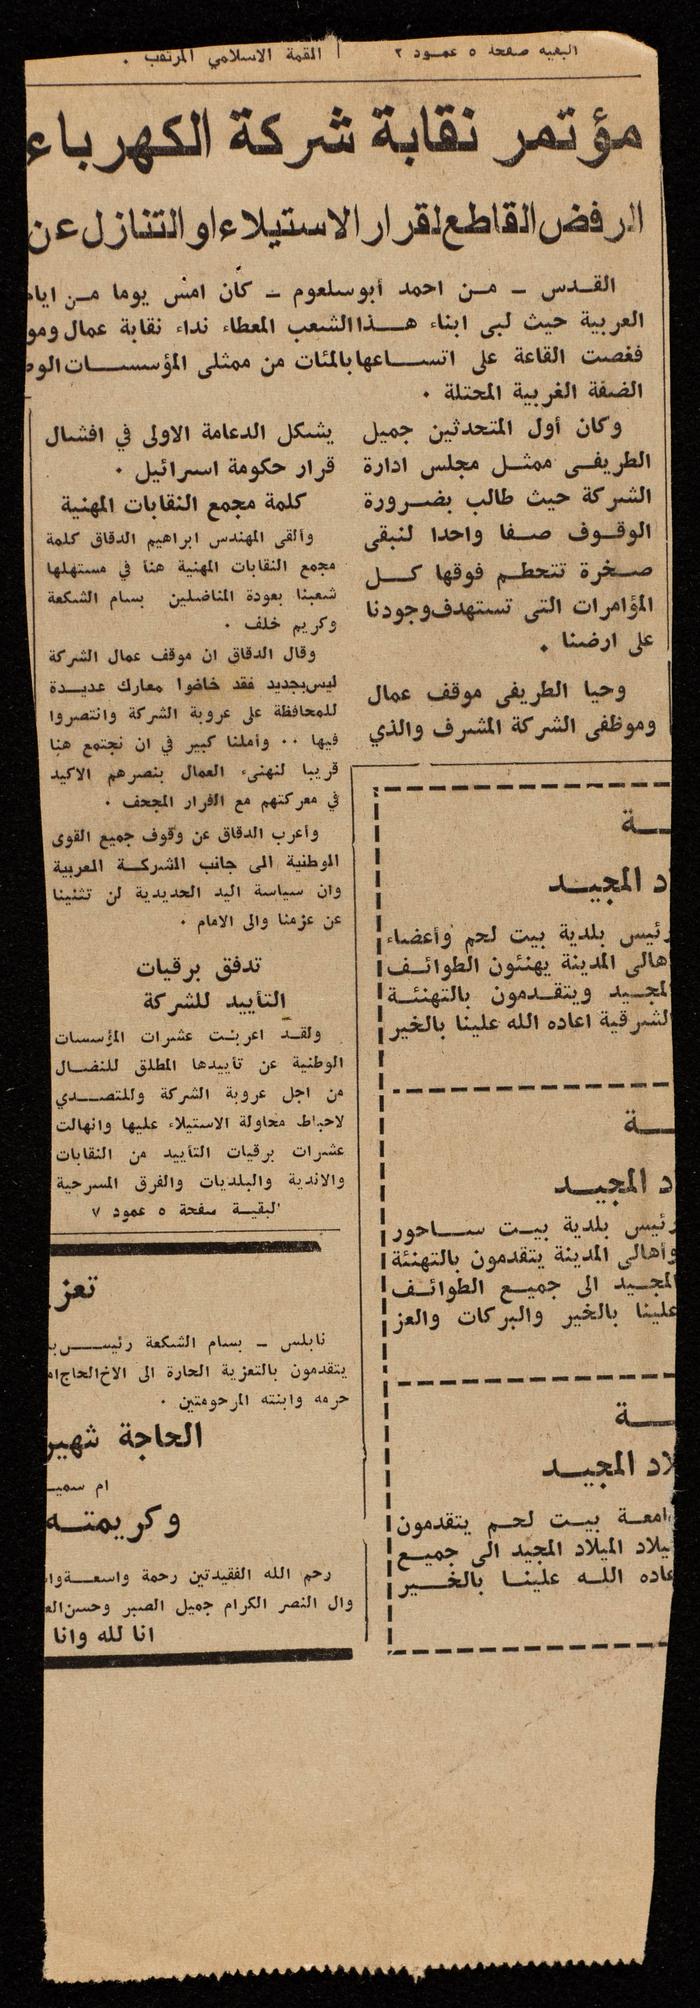 البقيه صفحة ٥ عمـود ٢
القمة الاسلامي المرتقب .
مؤتمر نقابة شركة الكهرباء
الرفض القاطع لقرار الاستيلاء او التنازل عن
القـدس ــ مـن احمد أبو سلعوم ــ كان امس يوما مـن
العربية حيث لبى ابناء هــذا الشعب المعطاء نداء نقابة عمال
فغصت القاعة على اتســاعها بالمئات من ممثلى المؤسســات
الضفة الغربية المحتلة .
وكان أول المتحدثين جميل
الطريفـى ممثـل مجلس ادارة
الشركة حيث طالب بضـرورة
الوقـوف صـفا واحدا لنبقى
صـخرة تتحطـم فوقها كــل
المؤامرات التى تستهدف وجودنا
على ارضنا .
وحيا الطريفى موقف عمال
وموظفى الشركة المشرف والذي
يشكل الدعامة الاولى في افشال
قرار حكومة اسرائيل .
كلمة مجمع النقابات المهنية
وألقى المهندس ابراهيم الدقاق كلمة
مجمع النقابات المهنية هنأ في مستهلها
شعبنا بعودة المناضلين بسام الشكعة
وكريم خلف .
وقال الدقاق ان موقف عمال الشركة
ليس بجديد فقد خاضوا معارك عديـدة
للمحافظة على عروبة الشركة وانتصروا
فيها .. وأملنا كبير في ان نجتمع هنا
قريبا لنهنىء العمال بنصرهم الاكيد
في معركتهم مع القرار المجحف .
وأعرب الدقاق عن وقوف جميع القوى
الوطنية الى جانب الشركـة العربية
وان سياسة اليد الحديدية لن تثنينا
عن عزمنا والى الامام .
تدفق برقيات
التأييد للشركة
ولقـد اعربت عشرات المؤسسات
الوطنية عن تأييدها المطلق للنضـال
من اجل عروبة الشركة وللتصـدي
لاحباط محاولة الاستيلاء عليها وانهالت
عشرات برقيات التأييد من النقابات
والاندية والبلديات والفرق المسرحية
البقيـة صفحة ٥ عمود ٧
المجيــد
رئيس بلدية بيت لحم وأعضاء
اهالى المدينة يهنئون الطوائـف
المجـيد ويتقـدمون بالتهنئـة
الشرقية اعاده الله علينا بالخير
المجيــد
رئيس بلدية بيـت ســاحور
وأهالى المدينة يتقدمون بالتهنئة
المجـيد الى جميـع الطوائـف
علينا بالخير والبركات والعز
المجيــد
بيـت لحـم يتقدمون
الميلاد المجيد الى جميـع
اللـه علينـا بالخــير
نابلس ــ بسام الشكعة رئيـس
يتقدمون بالتعزية الحارة الى الاخ الحاج
حرمه وابنته المرحومتين .
الحاجة
ام
وكريمتـه
رحم الله الفقيدتين رحمة واسعـة
وال النصر الكرام جميل الصبر وحسن
انا لله وانا